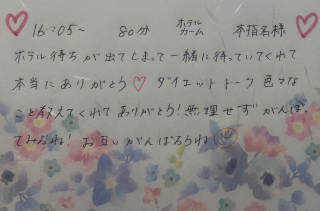 ♡ 16:05~ 80分 ホテルカーム 本指名様 ♡
ホテル待ちが出てしまって一緒に待っていてくれて
本当にありがとう♡ ダイエットトーク色々な
こと教えてくれてありがとう!無理せずがんば
てみるね! お互いがんばろうね